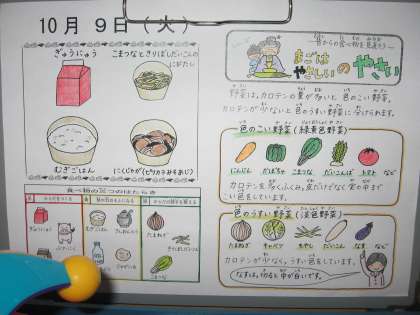 10月 9日(火)
ぎゅうにゅう
こまつなときりぼしだいこんの
にびたし
むぎごはん
にくじゃが(ピリカラみそあじ)
食べ物の三つのはたらき
ぎゅうにゅう
たまねぎ
昔からの食べ物を見直そう
まごは
やさしい
の
やさい
野菜は、カロテンの量が多いと、色のこい野菜、
カロテンが少ないと色のうすい野菜に分けられます。
色のこい野菜(緑黄色野菜)
にんじん
かぼちゃ
こまつな
さやいんげん
トマト
など
カロテンを多くふくみ、皮だけでなく実の中まで
こい色をしています。
色のうすい野菜(淡色野菜)
たまねぎ
キャベツ
もやし
だいこん
なす
など
カロテンが少なく、うすい色をしています。
なすは、切ると中が白いです。